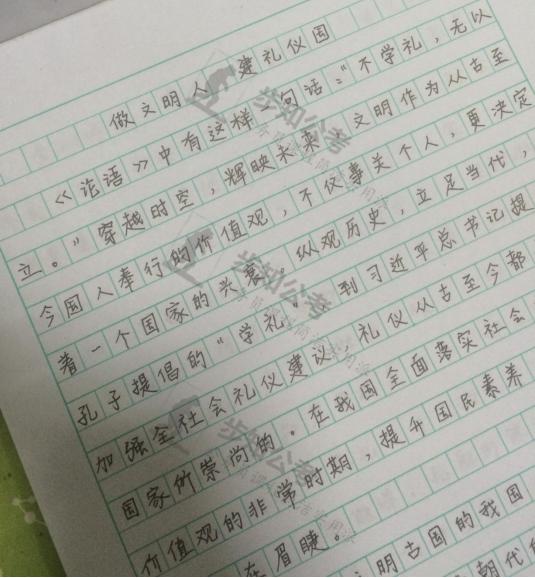 做文明人 建礼仪国
《论语》中有这样一句话："不学礼，无以
立。"穿越时空，辉映未来，文明作为从古至
今国人奉行的价值观，不仅事关个人，更决定
着一个国家的兴衰。纵观历史，立足当代，
孔子提倡的"学礼" 到习近平总书记提
加强全社会礼仪建议，礼仪从古至今都
国家所崇尚的。在我国全面落实社会
价值观的非常时期，提升国民素养
在眉睫。
明古国的我国
朝代
步知公考
步知公考
步知公考